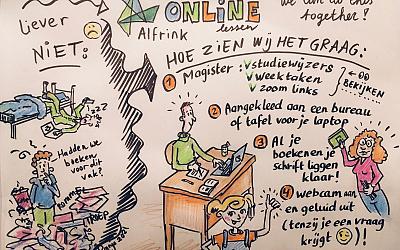 Liever
NIET:
ONLINE
lessen
Alfrink
we can do this
together!
HOE ZIEN WIJ HET GRAAG:
1 Magister: √ studiewijzers
√ weektaken
√ zoom links
BEKIJKEN
2 Aangekleed aan een bureau
of tafel voor je laptop
3 Al je
boeken en je
schrift liggen
klaar!
4 Webcam aan
en geluid uit
(tenzij je een vraag
krijgt )!
Hadden we
boeken
voor dit
vak?